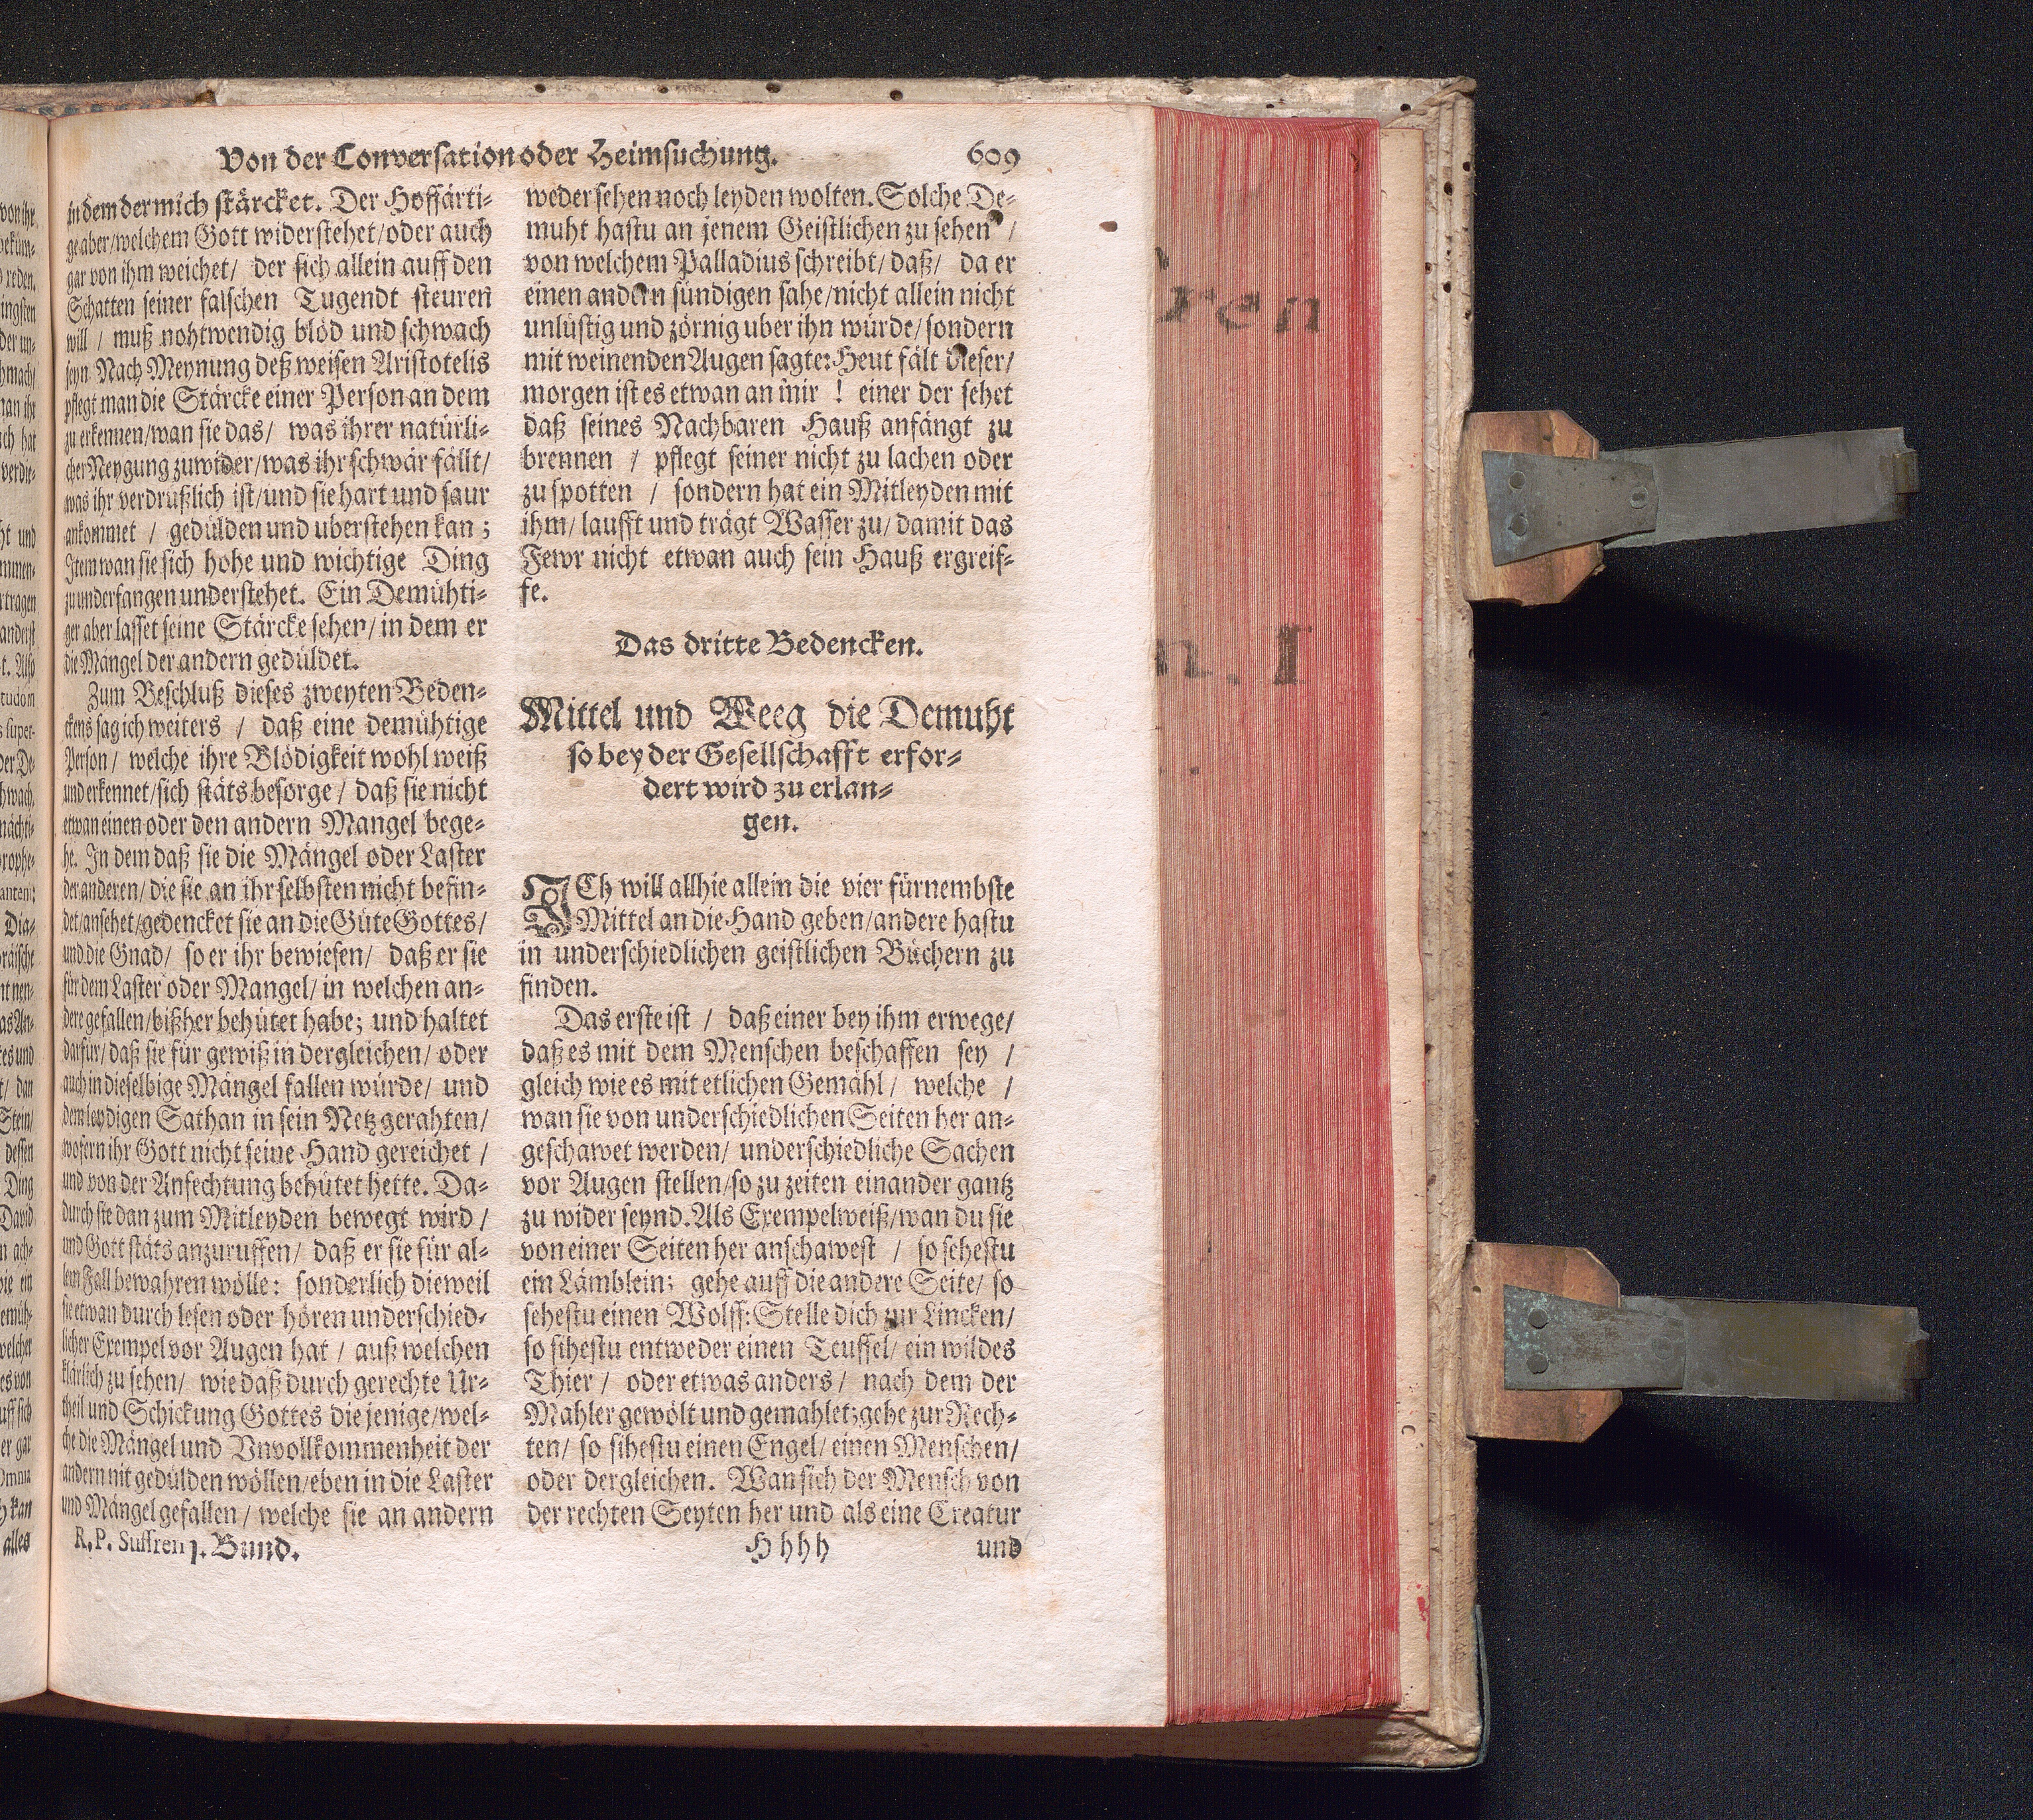 Von der Conversation oder Heimsuchung. 609
in dem der mich stärcket. Der Hoffärti-
ge aber/welchem Gott widerstehet/oder auch
gar von ihm weichet/ der sich allein auff den
Schatten seiner falschen Tugendt steuren
will / muß nohtwendig blöd und schwach
seyn Nach Meynung deß weisen Aristotelis
pflegt man die Stärcke einer Person an dem
zu erkennen/wan sie das/ was ihrer natürli-
cher Neygung zuwider/was ihr schwär fällt/
was ihr verdrußlich ist/und sie hart und saur
ankommet / gedülden und uberstehen kan;
Item wan sie sich hohe und wichtige Ding
zu underfangen understehet. Ein Demühti-
ger aber lasset seine Stärcke sehen/ in dem er
die Mängel der andern gedüldet.
Zum Beschluß dieses zweyten Beden-
ckens sag ich weiters / daß eine demühtige
Person / welche ihre Blödigkeit wohl weiß
und erkennet/sich stäts besorge / daß sie nicht
etwan einen oder den andern Mangel bege-
he. In dem daß sie die Mängel oder Laster
der anderen/ die sie an ihr selbsten nicht befin-
det/ansehet/gedencket sie an die Güte Gottes/
und die Gnad/ so er ihr bewiesen/ daß er sie
für dem Laster oder Mangel/ in welchen an-
dere gefallen/bißher behütet habe; und haltet
darfür/ daß sie für gewiß in dergleichen/ oder
auch in dieselbige Mängel fallen würde/ und
dem leydigen Sathan in sein Netz gerahten/
wofern ihr Gott nicht seine Hand gereichet /
und von der Anfechtung behütet hette. Da-
durch sie dan zum Mitleyden bewegt wird /
und Gott stäts anzuruffen/ daß er sie für al-
lem Fall bewahren wölle: sonderlich dieweil
sie etwan durch lesen oder hören underschied-
licher Exempel vor Augen hat / auß welchen
klärlich zu sehen/ wie daß durch gerechte Ur-
theil und Schickung Gottes die jenige/wel-
che die Mängel und Vnvollkommenheit der
andern nit gedülden wöllen/eben in die Laster
und Mängel gefallen / welche sie an andern
R. P. Suffren 1. Bund.
weder sehen noch leyden wolten. Solche De-
muht hastu an jenem Geistlichen zu sehen /
von welchem Palladius schreibt/ daß/ da er
einen andern sündigen sahe/nicht allein nicht
unlustig und zörnig uber ihn würde/ sondern
mit weinenden Augen sagte: Heut fält dieser/
morgen ist es etwan an mir ! einer der sehet
daß seines Nachbaren Hauß anfängt zu
brennen / pflegt seiner nicht zu lachen oder
zu spotten / sondern hat ein Mitleyden mit
ihm/ laufft und trägt Wasser zu/ damit das
Fewr nicht etwan auch sein Hauß ergreif-
fe.
Das dritte Bedencken.
Mittel und Weeg die Demuht
so bey der Gesellschafft erfor-
dert wird zu erlan-
gen.
ICh will allhie allein die vier fürnembste
Mittel an die Hand geben/andere hastu
in underschiedlichen geistlichen Büchern zu
finden.
Das erste ist / daß einer bey ihm erwege/
daß es mit dem Menschen beschaffen sey /
gleich wie es mit etlichen Gemähl/ welche /
wan sie von underschiedlichen Seiten her an-
geschawet werden/ underschiedliche Sachen
vor Augen stellen/so zu zeiten einander gantz
zu wider seynd. Als Exempelweiß/wan du sie
von einer Seiten her anschawest / so sehestu
ein Lämblein; gehe auff die andere Seite/ so
sehestu einen Wolff: Stelle dich zur Lincken/
so sihestu entweder einen Teuffel/ ein wildes
Thier / oder etwas anders/ nach dem der
Mahler gewölt und gemahlet; gehe zur Rech-
ten/ so sihestu einen Engel/ einen Menschen/
oder dergleichen. Wan sich der Mensch von
der rechten Seyten her und als eine Creatur
Hhhh und
ren
n. I